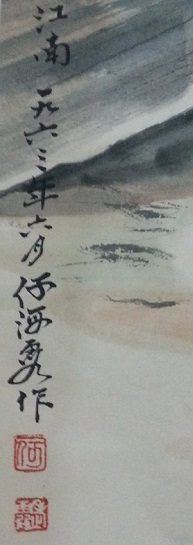 江南一九六三年六月何海霞作
何